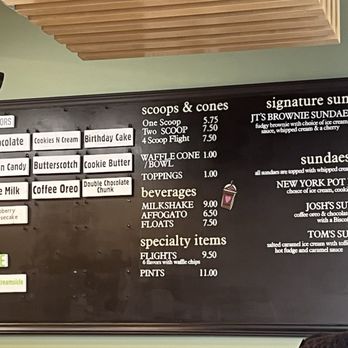 ORS
ocolate Cookies N Cream Birthday Cake
n Candy Butterscotch Cookie Butter
e Milk Coffee Oreo Double Chocolate Chunk
scoops & cones
One Scoop 5.75
Two SCOOP 7.50
4 Scoop Flight 7.50
WAFFLE CONE / BOWL 1.00
TOPPINGS 1.00
beverages
MILKSHAKE 9.00
AFFOGATO 6.50
FLOATS 7.50
specialty items
FLIGHTS 9.50
6 flavors with waffle chips
PINTS 11.00
signature sun
JT'S BROWNIE SUNDAE
fudgy brownie with choice of ice cream
sauce, whipped cream & a cherry
sundaes
all sundaes are topped with whipped cream
NEW YORK POT
choice of ice cream, cook
JOSH'S SU
coffee oreo & chocolate
with a Bisco
TOM'S SU
salted caramel ice cream with toffe
hot fudge and caramel sauce